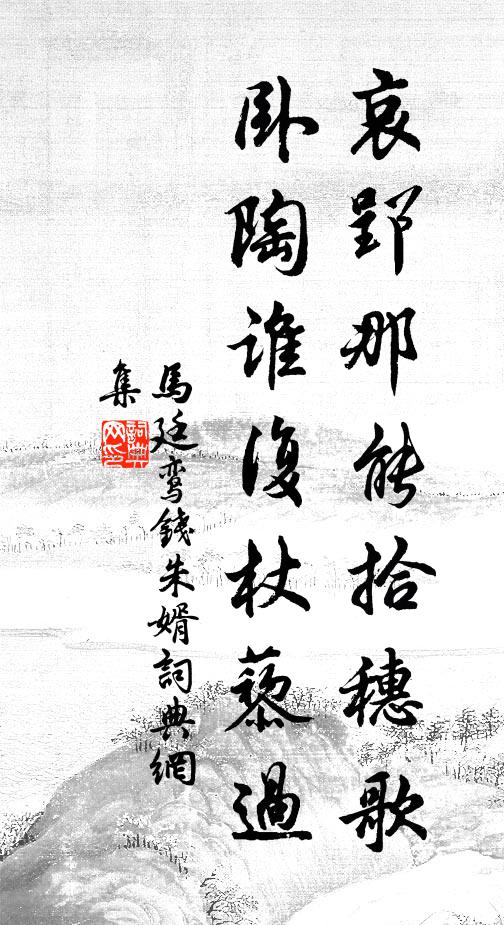 哀郢那能拾穗歌
卧陶誰復杖藜過
馬廷鸾錢朱婿詞典網
集